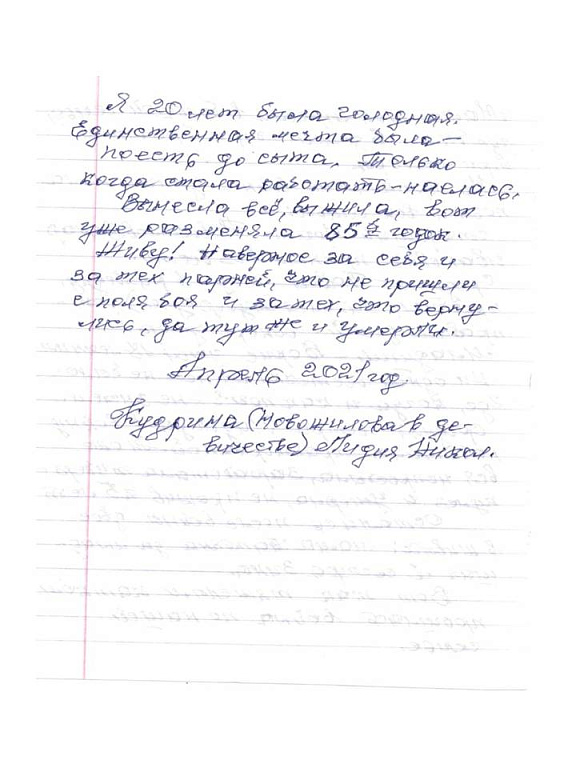 Я 20 лет была голодная.
Единственная мечта была –
поесть до сыта. Только
когда стала работать – наелась.
Вынесла всё, выжила, вот
уже разменяла 85й годок.
Живу! Наверное за себя и
за тех парней, что не пришли
с поля боя и за тех, что верну-
лись, да тут же и умерли.
Апрель 2021 год
Кудрина (Новожилова в де-
вичестве) Лидия